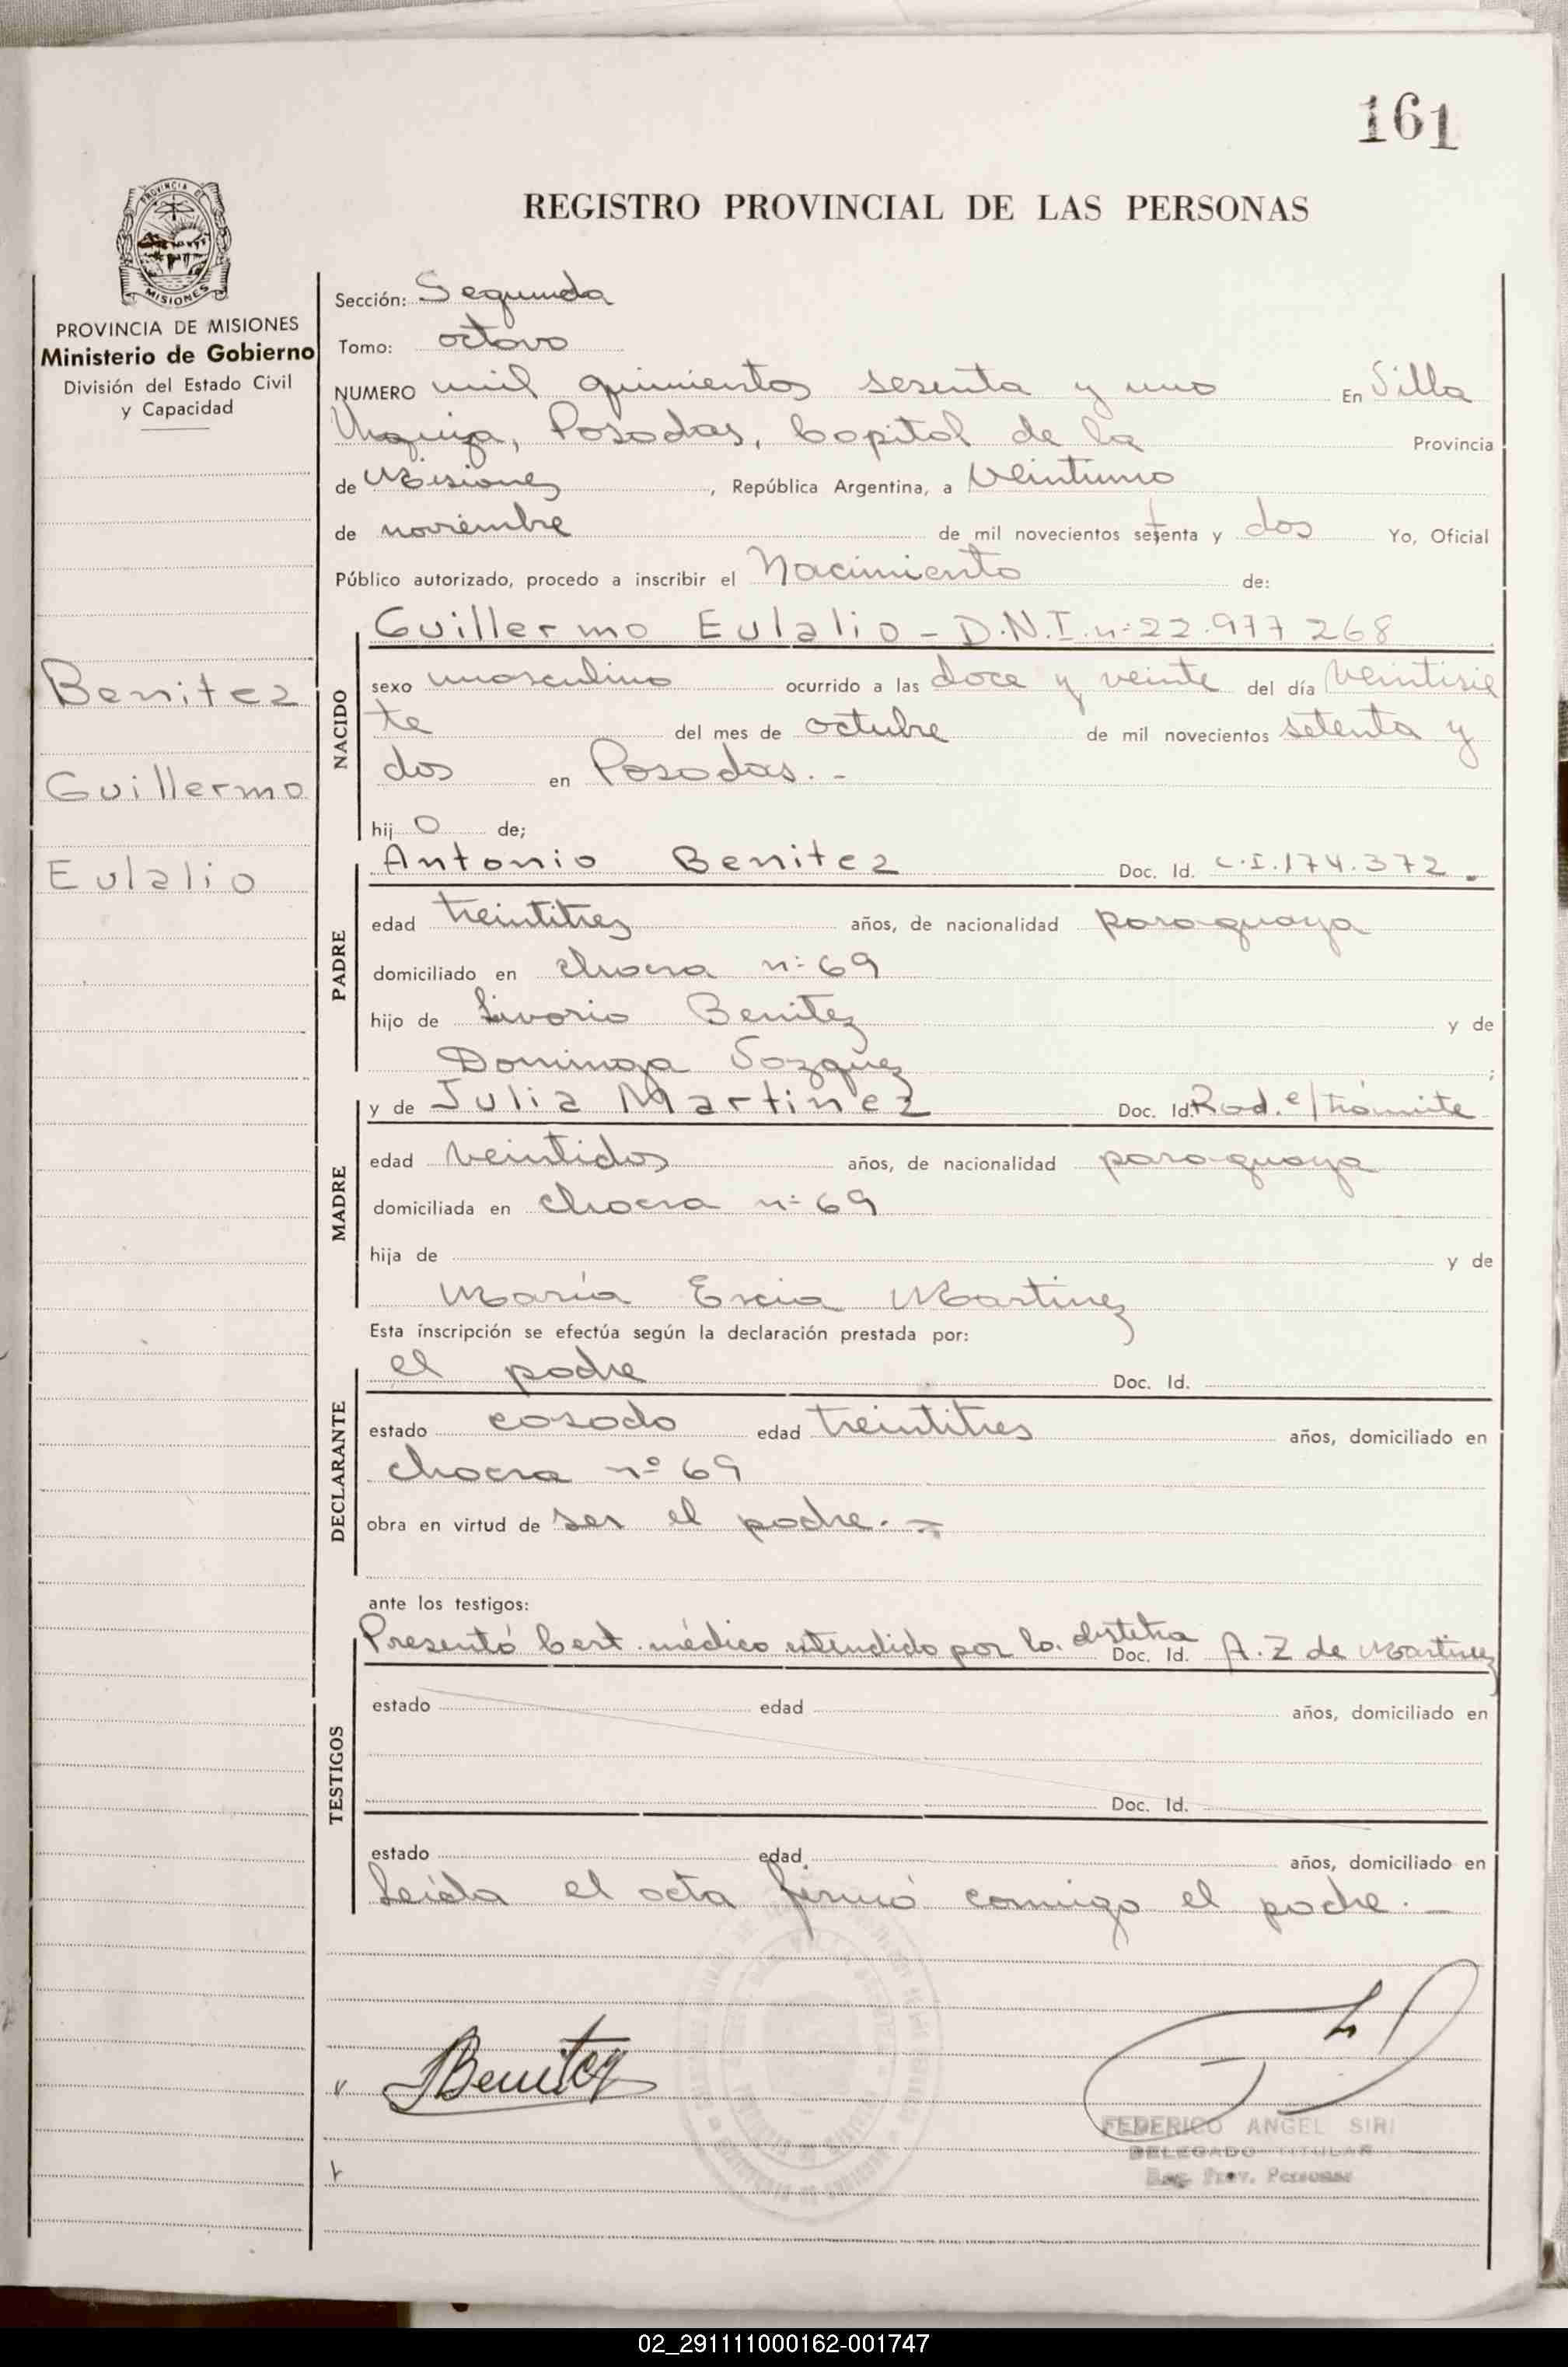 161
REGISTRO PROVINCIAL DE LAS PERSONAS
PROVINCIA DE MISIONES
PROVINCIA DE MISIONES
Ministerio de Gobierno
División del Estado Civil
y Capacidad
Benitez
Guillermo
Eulalio
Sección: Segunda
Tomo: octavo
NUMERO mil quinientos sesenta y uno En Villa
Urquiza, Posadas, Capital de la Provincia
de Misiones, República Argentina, a veintiuno
de noviembre de mil novecientos setenta y dos Yo, Oficial
Público autorizado, procedo a inscribir el Nacimiento de:
NACIDO
Guillermo Eulalio - D.N.I. nº 22.977 268
sexo masculino ocurrido a las doce y veinte del día veintisie
te del mes de octubre de mil novecientos setenta y
dos en Posadas. -
hij o de;
PADRE
Antonio Benitez Doc. Id. C.I. 174.372.
edad treintitres años, de nacionalidad paraguaya
domiciliado en chacra nº 69
hijo de Livorio Benitez y de
Dominga Vazquez ;
MADRE
y de Julia Martinez Doc. Id. Rad. e/trámite
edad veintidos años, de nacionalidad paraguaya
domiciliada en chacra nº 69
hija de y de
María Martinez
Esta inscripción se efectúa según la declaración prestada por:
DECLARANTE
el padre Doc. Id.
estado casado edad treintitres años, domiciliado en
chacra nº 69
obra en virtud de ser el padre. -
ante los testigos:
TESTIGOS
Presentó Cert. médico extendido por la Doc. Id. A. Z de Martinez
estado edad años, domiciliado en
Doc. Id.
estado edad años, domiciliado en
Leída el acta firmó conmigo el padre. -
Benitez
FEDERICO ANGEL SIRI
DELEGADO TITULAR
Reg. Prov. Personas
02_291111000162-001747